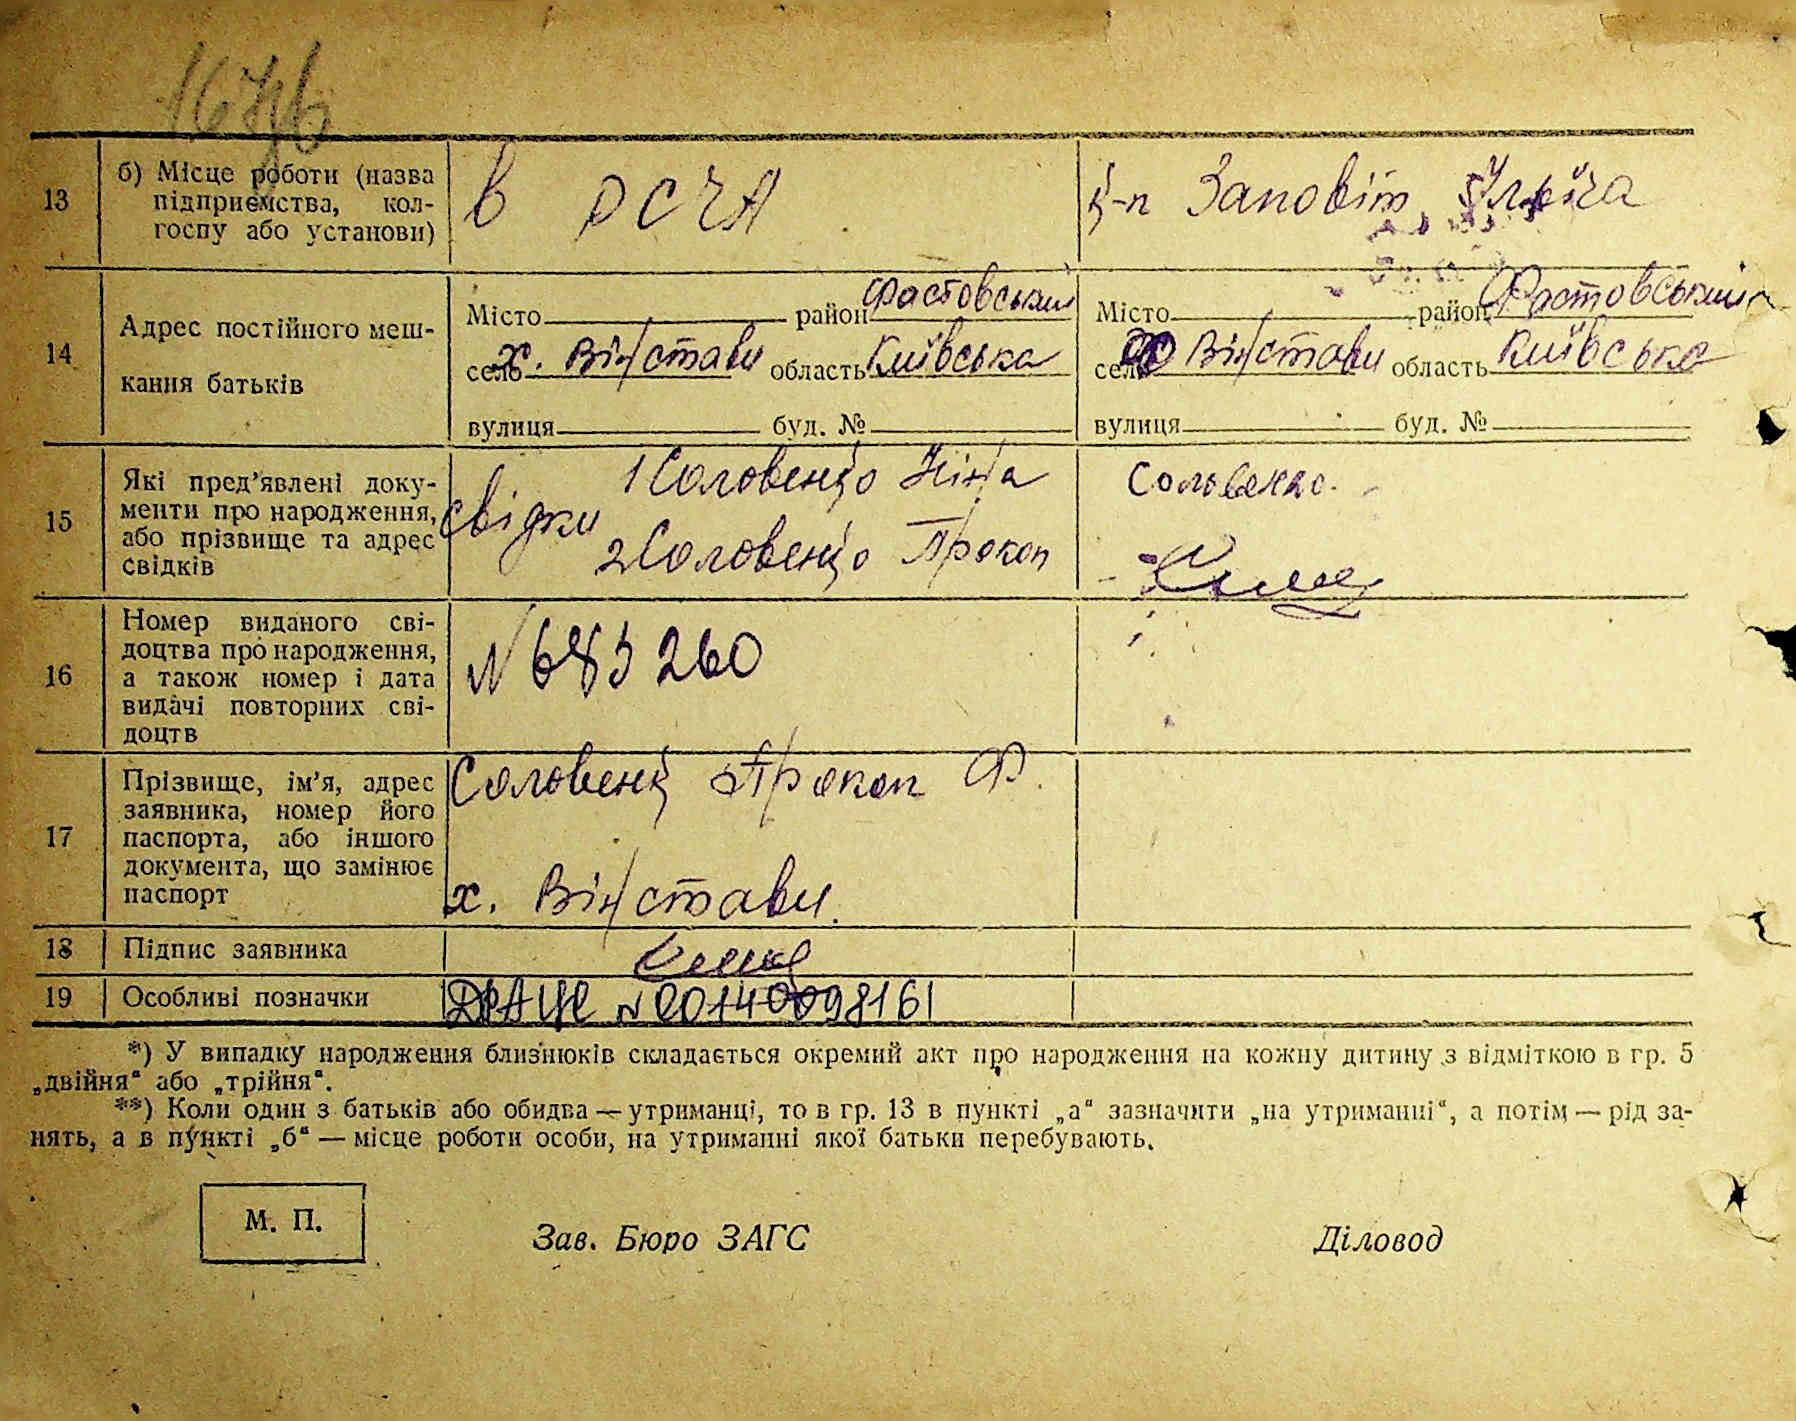 13
б) Місце роботи (назва
підприємства, кол-
госпу або установи)
в РСЧА
к-п Заповіт Ілліча
14
Адрес постійного меш-
кання батьків
Місто район Фастовський
село х. Вінстави область Київська
вулиця буд. №
Місто район Фастовський
село Вінстави область Київська
вулиця буд. №
15
Які пред'явлені доку-
менти про народження,
або прізвище та адрес
свідків
свідки 1 Соловенцо Ніна
2 Соловенцо Прокоп
16
Номер виданого сві-
доцтва про народження,
а також номер і дата
видачі повторних сві-
доцтв
№ 683260
17
Прізвище, ім'я, адрес
заявника, номер його
паспорта, або іншого
документа, що замінює
паспорт
Соловенц Прокоп Ф.
х. Вінстави.
18
Підпис заявника
19
Особливі позначки
ДРАЦС № 00140098161
*) У випадку народження близнюків складається окремий акт про народження на кожну дитину з відміткою в гр. 5
„двійня“ або „трійня“.
**) Коли один з батьків або обидва — утриманці, то в гр. 13 в пункті „а“ зазначити „на утриманні“, а потім — рід за-
нять, а в пункті „б“ — місце роботи особи, на утриманні якої батьки перебувають.
М. П.
Зав. Бюро ЗАГС
Діловод